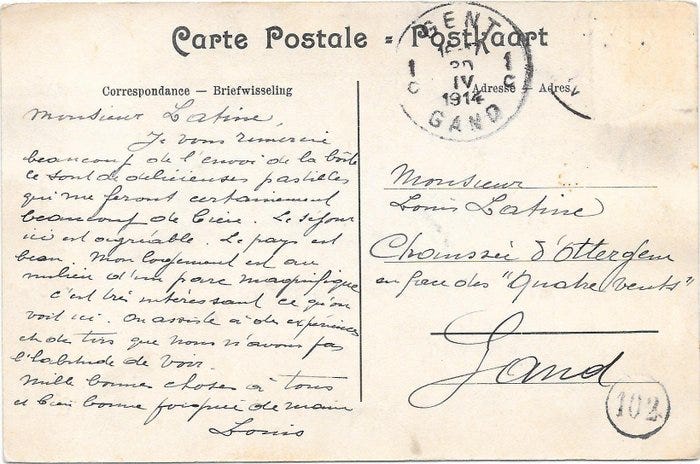 Carte Postale = Postkaart
GENT
1 C
1 C
IV
1914
GAND
Correspondance — Briefwisseling
Adresse — Adres
Monsieur Latine,
Je vous remercie
beaucoup de l'envoi de la boîte
ce sont de délicieuses pastilles
qui me feront certainement
beaucoup de bien. Le séjour
ici est agréable. Le pays est
beau. Mon logement est au
milieu d'un parc magnifique
c'est très intéressant ce qu'on
voit ici. On assiste à des expériences
et des tirs que nous n'avons pas
l'habitude de voir.
Mille bonnes choses à tous
et bien bonne poignée de main
Louis
Monsieur
Louis Latine
Chaussée d'Ottergem
en face des "Quatre vents"
Gand
102